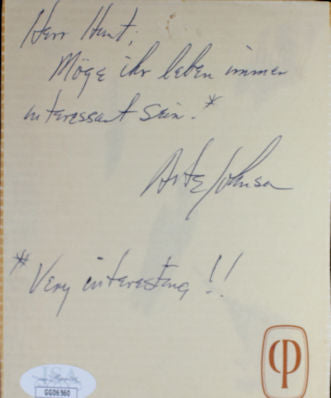 Herr Hunt,
Möge ihr leben immer
interessant sein.*
Arte Johnson
*Very interesting!!
φ
JSA
GG06960